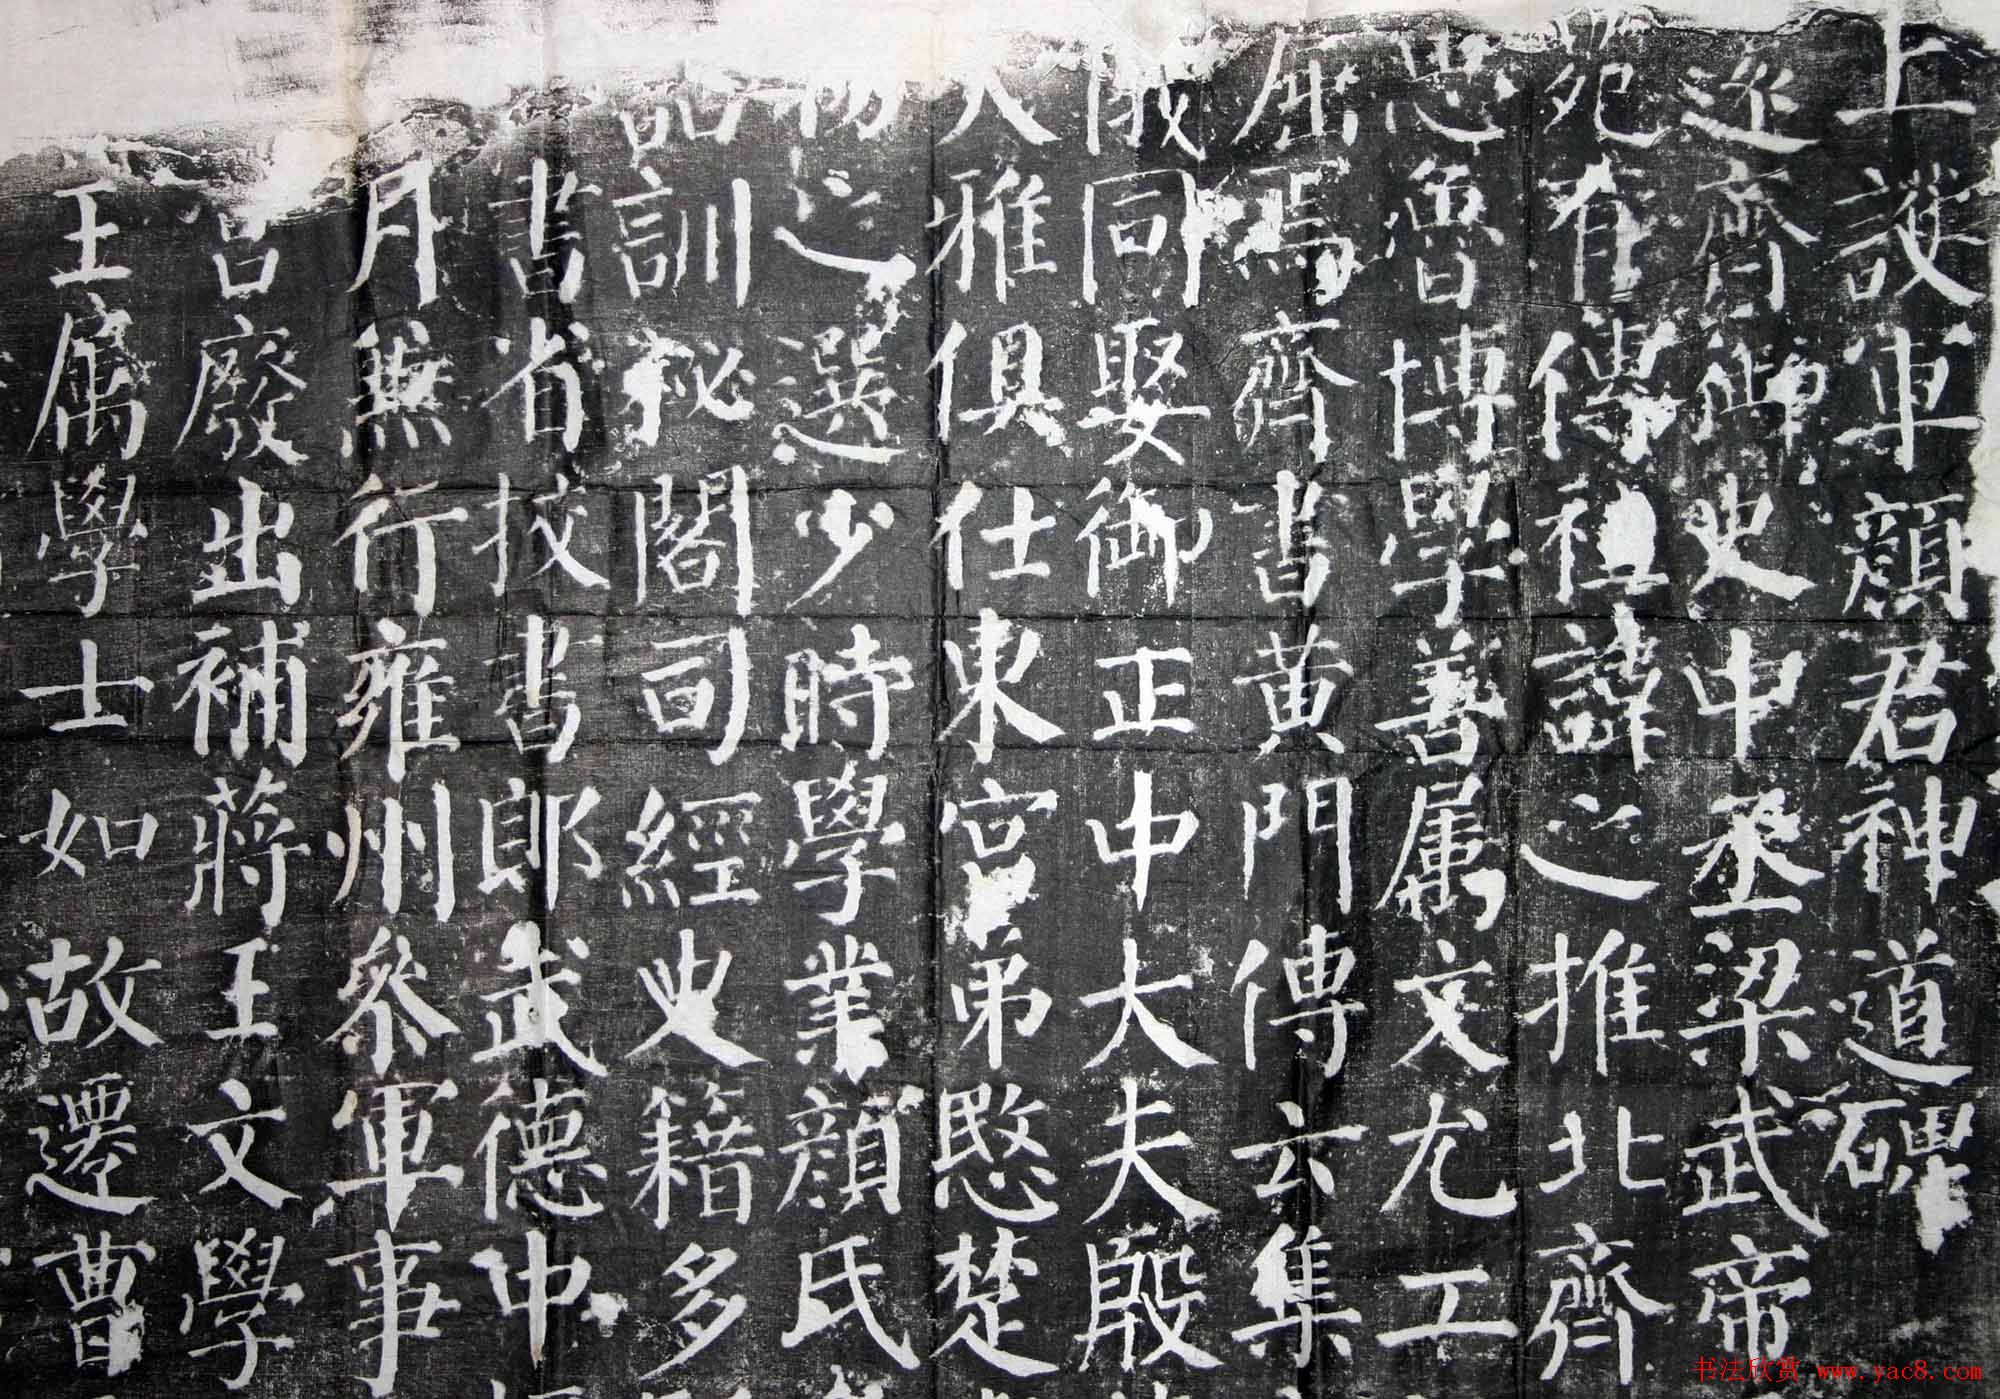 上護軍顏君神道碑
遠齊御史中丞梁武帝
苑有傳祖諱之推北齊
思魯博學善屬文尤工
屈焉齊書黃門傳云集
儀同娶御正中大夫殷
大雅俱仕東宮弟愍楚
物之選少時學業顏氏
詁訓秘閣司經史籍多
書省校書郎武德中
月兼行雍州參軍事
宮廢出補蔣王文學
王屬學士如故遷曹
书法欣赏 www.yac8.com